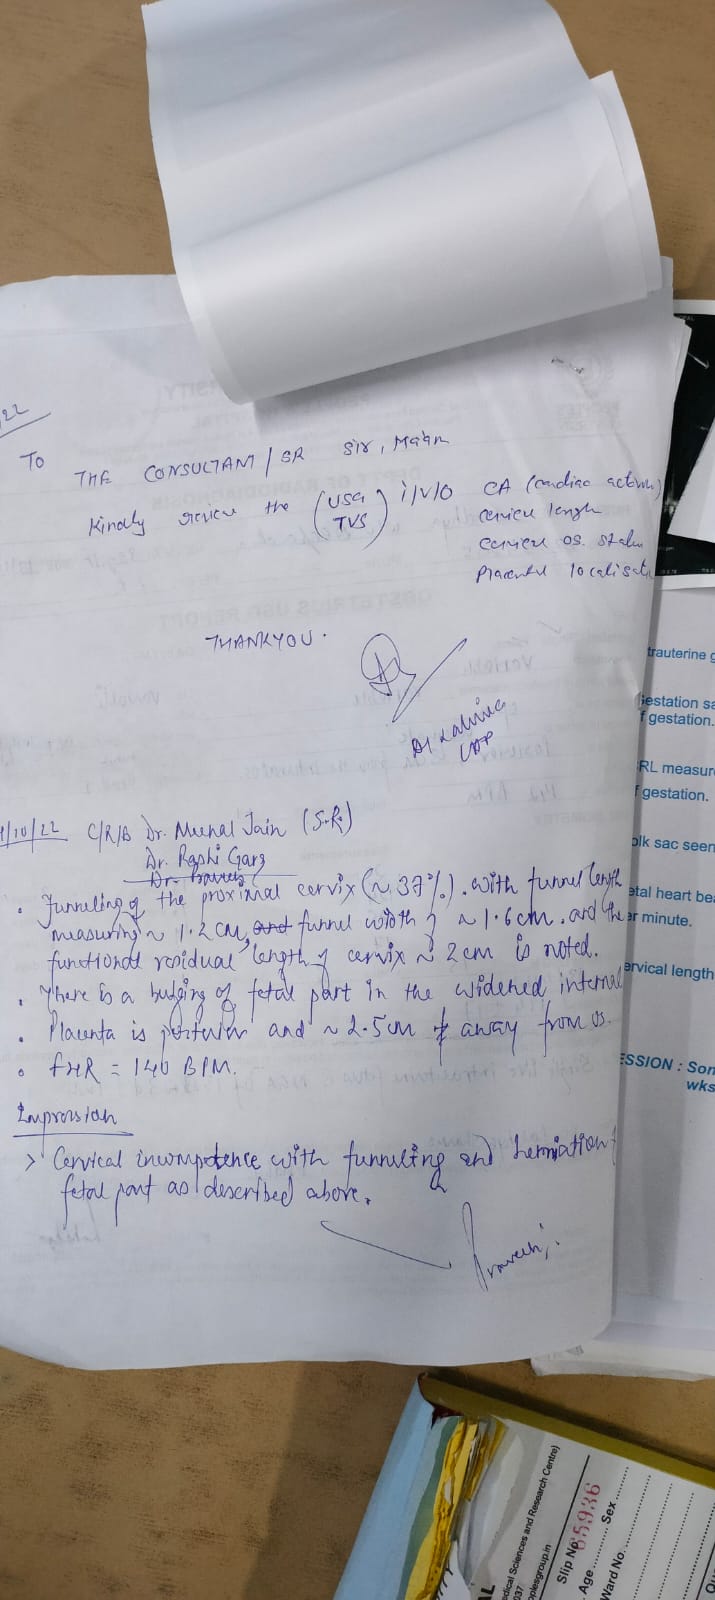 22
To
THE CONSULTANT / SR Sir, Ma'am
Kindly review the (USG TVS) i/v/o CA (cardiac activity)
cervical length
cervical os.
Placental localisatn
THANKYOU.
LAP
/10/22 C/R/B Dr. Meenal Jain (S.R.)
Dr. Rashi Garg
• Funneling of the proximal cervix (~ 37%). with funnel length
measuring ~ 1.2 cm, and funnel width of ~ 1.6cm. and the
functional residual length of cervix ~ 2 cm is noted.
• There is a bulging of fetal part in the widened internal
• Placenta is posterior and ~ 2.5cm away from os.
• FHR = 140 BPM.
Impression
> Cervical incompetence with funneling and herniation of
fetal part as described above.
trauterine g
Gestation sa
f gestation.
RL measur
f gestation.
olk sac seen
etal heart be
er minute.
ervical length
ESSION : Son
wks
edical Sciences and Research Centre)
037
oplesgroup.in
Slip No. 65936
Age Sex
Ward No.